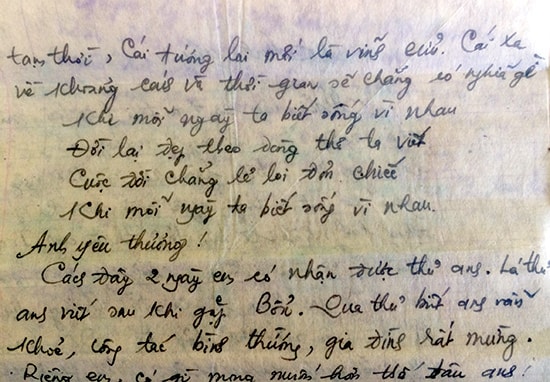 tạm thời, Cái tương lai mới là vĩnh cửu. Cái xa
về khoảng cách và thời gian sẽ chẳng có nghĩa gì
Khi mỗi ngày ta biết sống vì nhau
Đời lại đẹp theo dòng thơ ta viết
Cuộc đời chẳng lẻ loi đơn chiếc
Khi mỗi ngày ta biết sống vì nhau.
Anh yêu thương!
Cách đây 2 ngày em có nhận được thư anh. Lá thư
anh viết sau khi gặp Bổn. Qua thư biết anh vẫn
khoẻ, công tác bình thường, gia đình rất mừng.
Riêng em, có gì mong muốn hơn thế đâu anh!